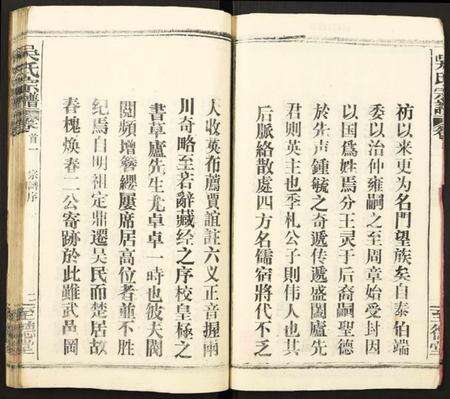 吳氏宗譜
卷
至德堂
祊以來更为名門望族矣自泰伯端
委以治仲雍嗣之至周章始受封因
以国爲姓焉分王灵于后裔嗣聖德
於先声鍾毓之奇遞传遞盛闔廬先
君则英主也季札公子则伟人也其
后脈絡散处四方名儒宿將代不乏
人收英布薦賈誼註六义正音握兩
川奇略至若辭藏经之序校皇極之
書草廬先生尤卓卓一時也彼夫閥
閲頻增簪纓屢席居高位者蓳不胜
纪焉自明祖定鼎遷吳民而楚居故
春槐焕春二公寄跡於此雖武邑岡
吳氏宗譜
卷首一
宗譜序
二
至德堂